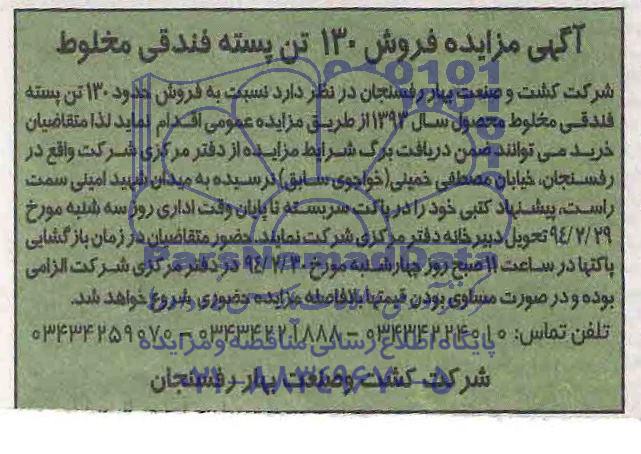 آگهی مزایده فروش ۱۳۰ تن پسته فندقی مخلوط
شرکت کشت و صنعت بهار رفسنجان در نظر دارد نسبت به فروش حدود ۱۳۰ تن پسته
فندقی مخلوط محصول سال ۱۳۹۳ از طریق مزایده عمومی اقدام نماید لذا متقاضیان
خرید می توانند ضمن دریافت برگ شرایط مزایده از دفتر مرکزی شرکت واقع در
رفسنجان، خیابان مصطفی خمینی (خواجوی سابق) نرسیده به میدان شهید امینی سمت
راست، پیشنهاد کتبی خود را در پاکت سربسته تا پایان وقت اداری روز سه شنبه مورخ
۹۴/۲/۲۹ تحویل دبیرخانه دفتر مرکزی شرکت نمایند. حضور متقاضیان در زمان بازگشایی
پاکتها در ساعت ۱۱ صبح روز چهارشنبه مورخ ۹۴/۲/۳۰ در دفتر مرکزی شرکت الزامی
بوده و در صورت مساوی بودن قیمتها بلافاصله مزایده حضوری شروع خواهد شد.
تلفن تماس: ۰۳۴۳۴۲۲۴۰۱۰ – ۰۳۴۳۴۲۲۱۸۸۸ – ۰۳۴۳۴۲۵۹۰۷۰
پایگاه اطلاع رسانی مناقصه و مزایده
شرکت کشت وصنعت بهار رفسنجان
۰۲۱-۸۸۳۴۹۶۷۰-۵